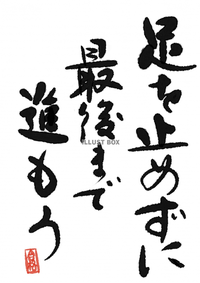 足を止めずに
最後まで
進もう
ILLUST BOX